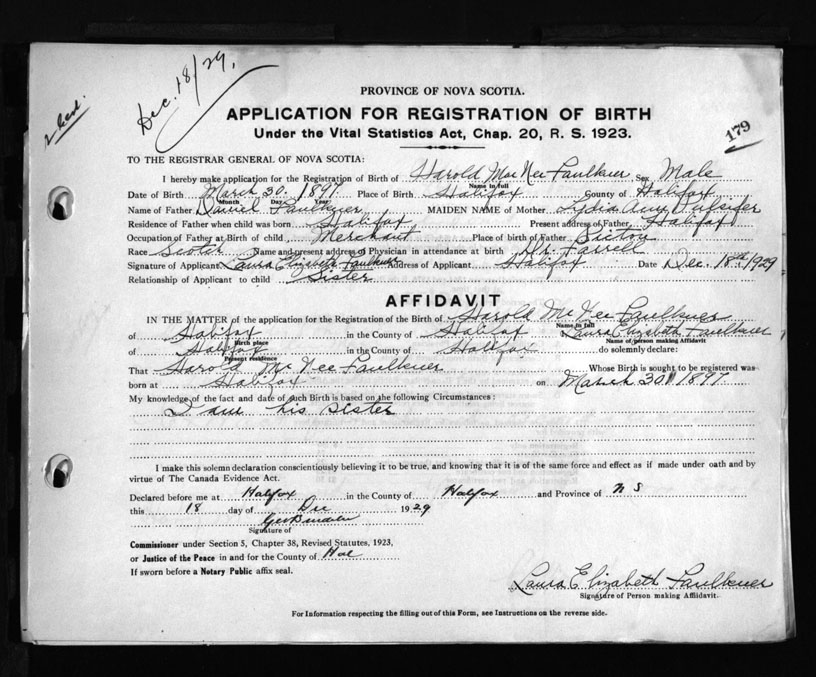 Dec. 18/29.
PROVINCE OF NOVA SCOTIA.
APPLICATION FOR REGISTRATION OF BIRTH
Under the Vital Statistics Act, Chap. 20, R. S. 1923.
179
TO THE REGISTRAR GENERAL OF NOVA SCOTIA:
I hereby make application for the Registration of Birth of Harold Mac Nee Faulkner Sex Male
Name in full
Date of Birth March 30. 1897 Place of Birth Halifax County of Halifax
Month Day Year
Name of Father Daniel Faulkner MAIDEN NAME of Mother Lydia Ann Pulsifer
Residence of Father when child was born Halifax Present address of Father Halifax
Occupation of Father at Birth of child Merchant Place of birth of Father Pictou
Race Scotch Name and present address of Physician in attendance at birth Dr. Farrell
Signature of Applicant Laura Elizabeth Faulkner Address of Applicant Halifax Date Dec. 18th 1929
Relationship of Applicant to child Sister
AFFIDAVIT
IN THE MATTER of the application for the Registration of the Birth of Harold Mc Nee Faulkner
Name in full
of Halifax in the County of Halifax Laura Elizabeth Faulkner
Birth place Name of person making Affidavit
of Halifax in the County of Halifax do solemnly declare:
Present residence
That Harold Mc Nee Faulkner Whose Birth is sought to be registered was
born at Halifax on March 30 1897
My knowledge of the fact and date of such Birth is based on the following Circumstances:
I am his sister
I make this solemn declaration conscientiously believing it to be true, and knowing that it is of the same force and effect as if made under oath and by
virtue of The Canada Evidence Act.
Declared before me at Halifax in the County of Halifax and Province of N S
this 18 day of Dec 1929
Signature of
Commissioner under Section 5, Chapter 38, Revised Statutes, 1923,
or Justice of the Peace in and for the County of
If sworn before a Notary Public affix seal.
Laura Elizabeth Faulkner
Signature of Person making Affidavit.
For Information respecting the filling out of this Form, see Instructions on the reverse side.